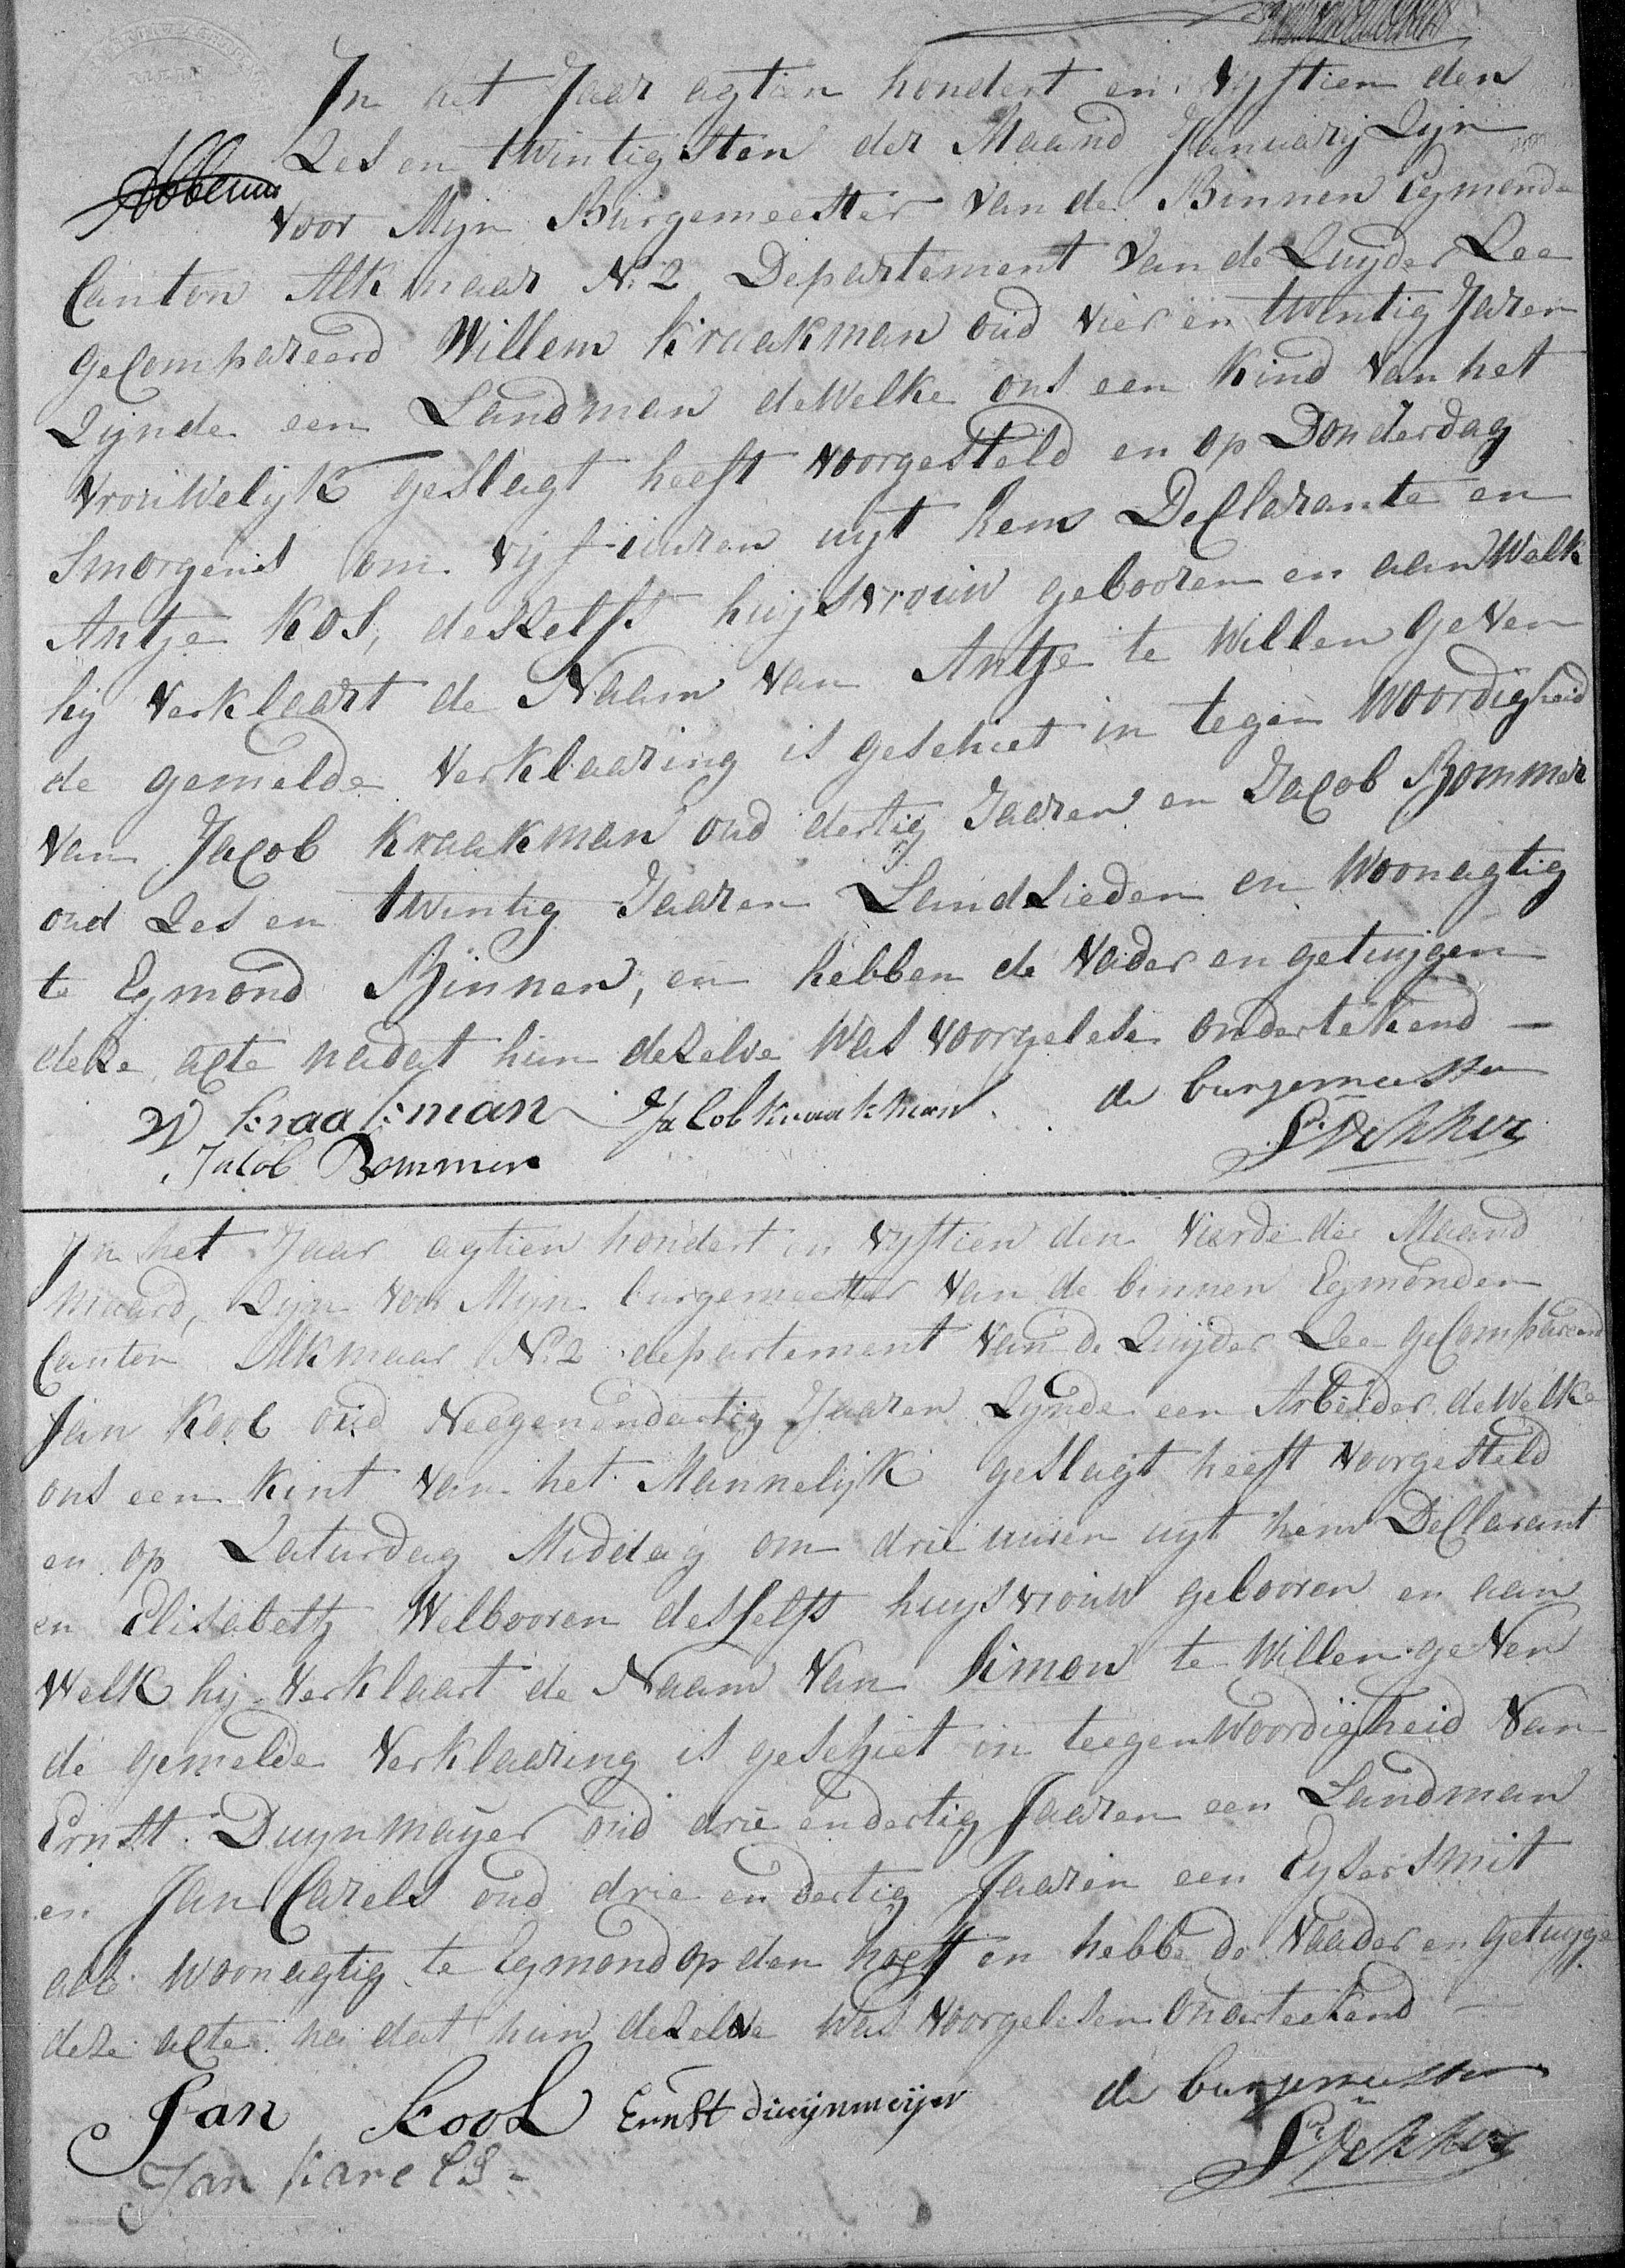 In het Jaar agtien hondert en vyftien den
Zes en twintigsten der Maand Januarij Zijn
voor Mijn Burgemeester van de Binnen Egmonde
Canton Alkmaar N. 2 Departement van de Zuyder Zee
geCompareerd Willem Kraakman oud vier en twintig Jaren
Zijnde een Landman deWelke ons een Kind van het
vrouwelijk geslagt heeft voorgesteld en op Donderdag
smorgens om vijf uuren uyt hem Declarante en
Antje Kos, deszelfs huijsvrouw gebooren en aan Welk
hij verklaart de Naam van Antje te Willen geven
de gemelde verklaaring is geschiet in tegen woordigheid
van Jacob Kraakman oud dertig Jaaren en Jacob Bommer
oud Zes en twintig Jaaren Landlieden en Woonagtig
te Egmond Binnen, en hebben de Vader en getuijgen
deze acte nadat hun dezelve Was voorgelese ondertekend —
W Kraakman Jacob kraakman de burgemeester
Jacob Bommer P. Dekker
In het Jaar agtien hondert en vyftien den vierde der Maand
maard, Zijn voor Mijn burgemeester van de binnen Egmonden
Canton Alkmaar N. 2 departement van de Zuijder Zee geCompareerd
Jan Kool oud Neegenendertig Jaaren Zijnde een Arbeider deWelke
ons een Kint van het Mannelijk geslagt heeft voorgesteld
en op Zaturdag Middag om drie uuren uyt hem Declarant
en Elisabeth Welbooren desselfs huijsvrouw gebooren en aan
Welk hij verklaart de Naam van Simon te Willen geven
de gemelde verklaaring is geschiet in teegenwoordigheid van
Ernst Duynmayer oud drie en dertig Jaaren een Landman
en Jan Carels oud drie en dertig Jaaren een Eysersmit
alle woonagtig te Egmond op den hoeff en hebbe de Vaader en getuyge
deze acte na dat hun dezelve Was voorgelesen Onderteekend —
Jan Kool Ernst duijnmeijer de burgemeester
Jan karels P. Dekker